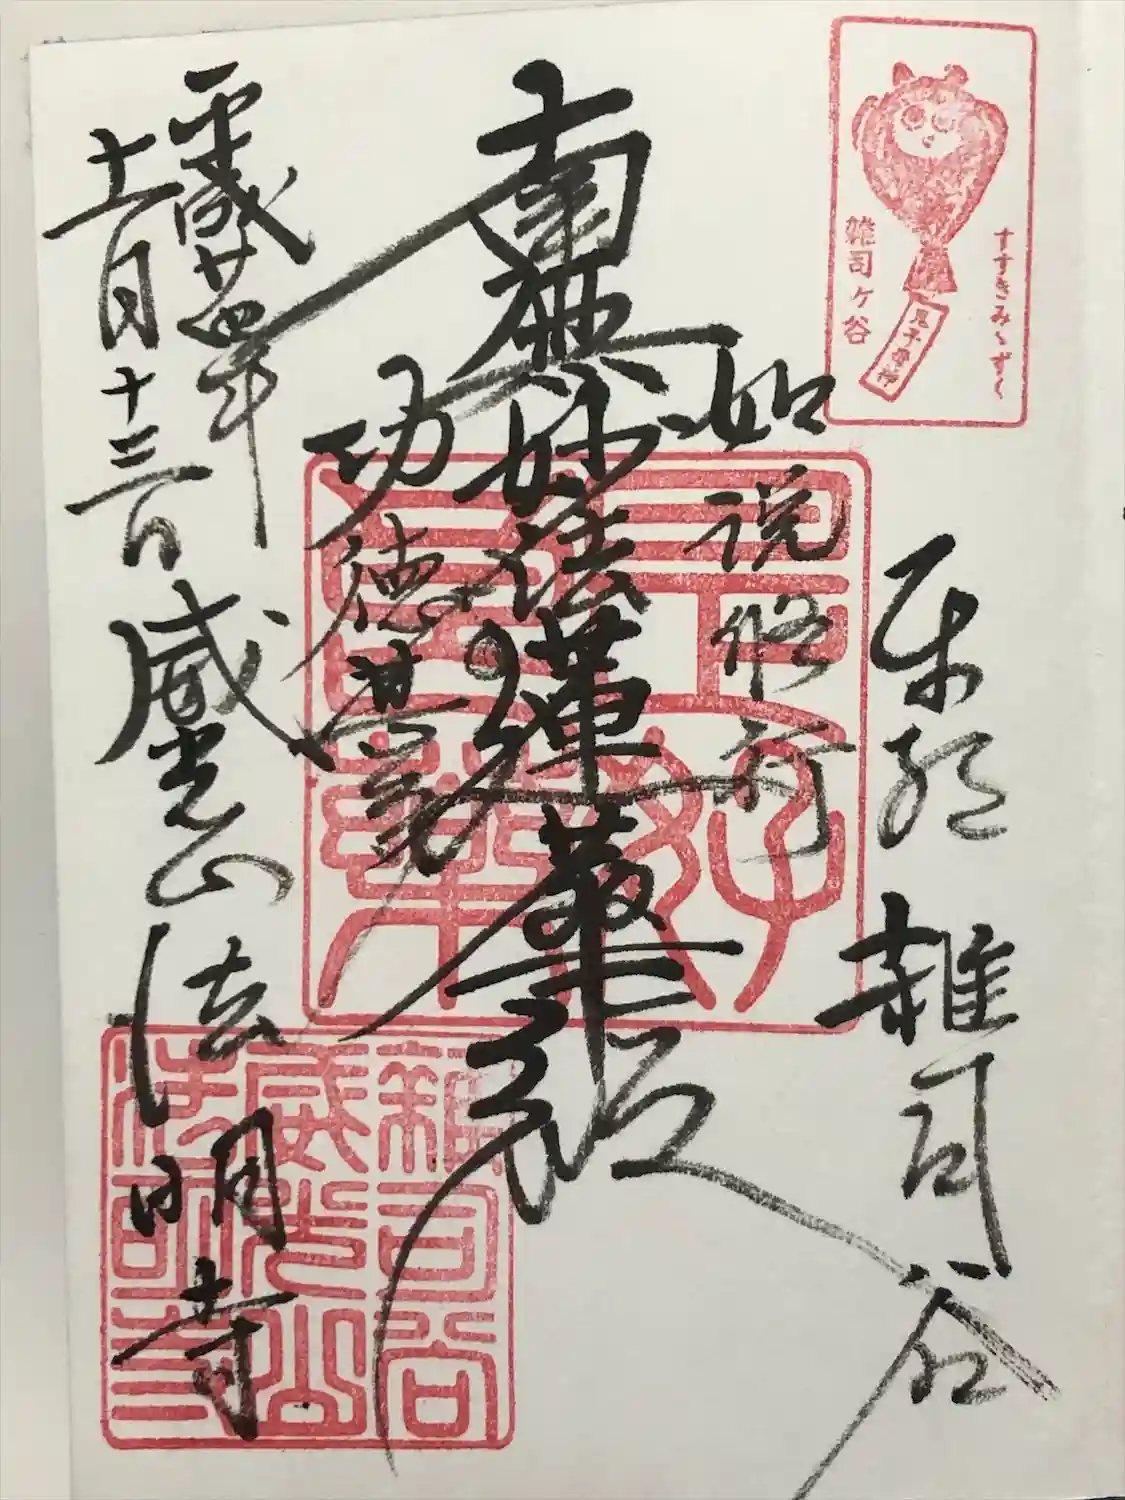 東都 雑司谷
如説修行
南無妙法蓮華経
功徳甚多
平成廿四年
十一月十三日
威光山 法明寺
すすきみゝずく
雑司ヶ谷
鬼子母神
雑司谷
威光山
法明寺